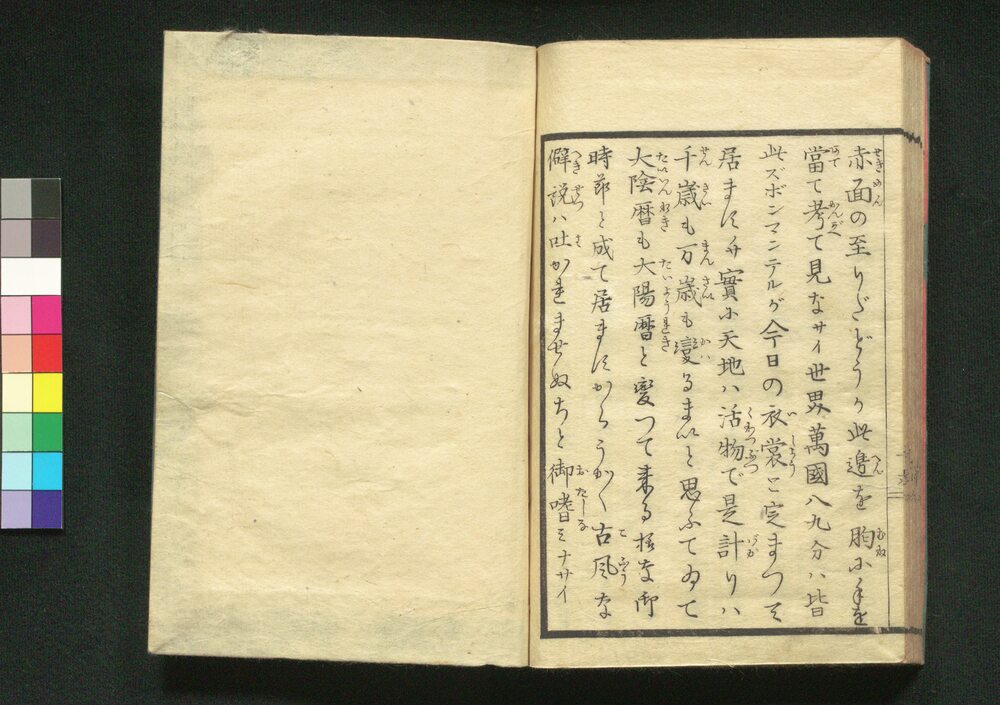 赤面の至りだどうか此邊を胸に手を
當て考て見なサイ世界萬國八九分ハ皆
此ズボンマンテルが今日の衣裳と定まつて
居ます弁實に天地ハ活物で是計りハ
千歳も万歳も變るまいと思ふてゐて
大陰暦も大陽暦と変つて来る様な御
時節と成て居ますからうか〱古風な
僻説ハ吐かれませぬちと御嗜ミナサイ